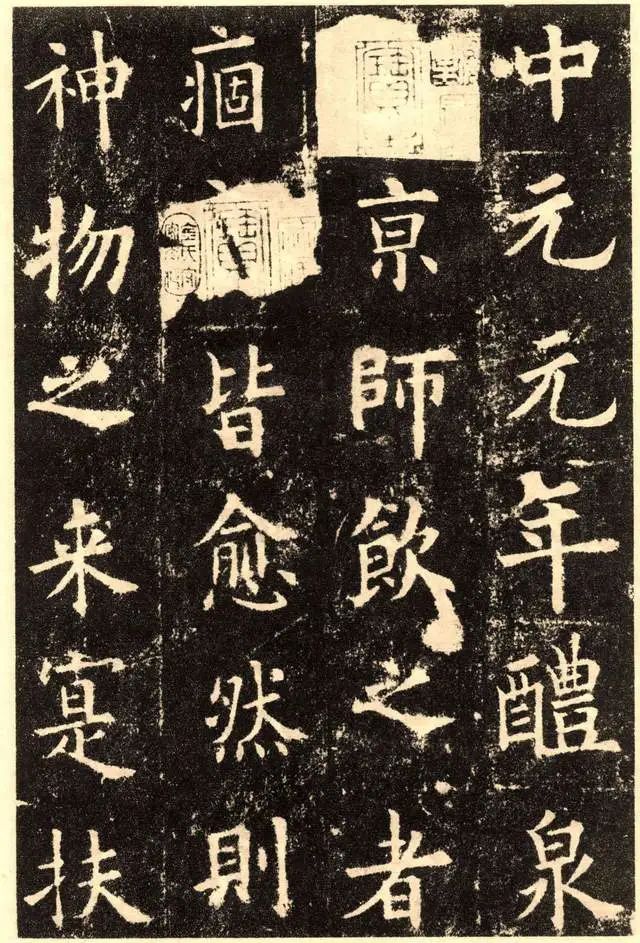 中元元年醴泉
亰師飲之者
痼皆愈然則
神物之来寔扶